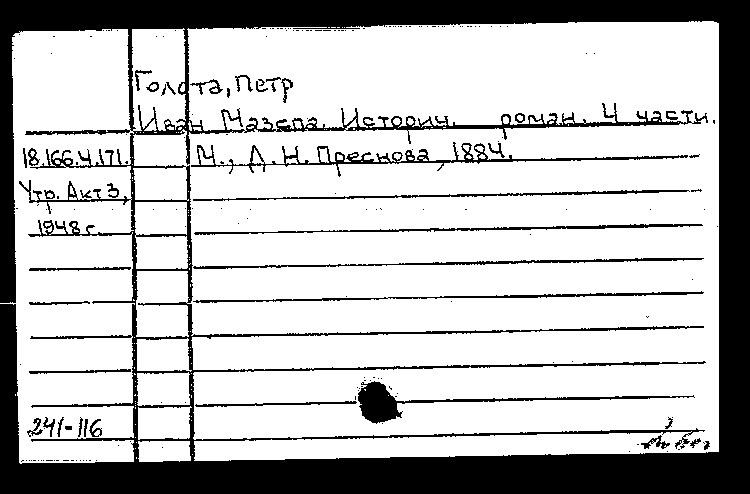 Голота, Петр
Иван Мазепа. Историч. роман. 4 части.
18.166.4.171. М., Д. Н. Преснова, 1884.
Утр. Акт 3,
1948 г.
241-116